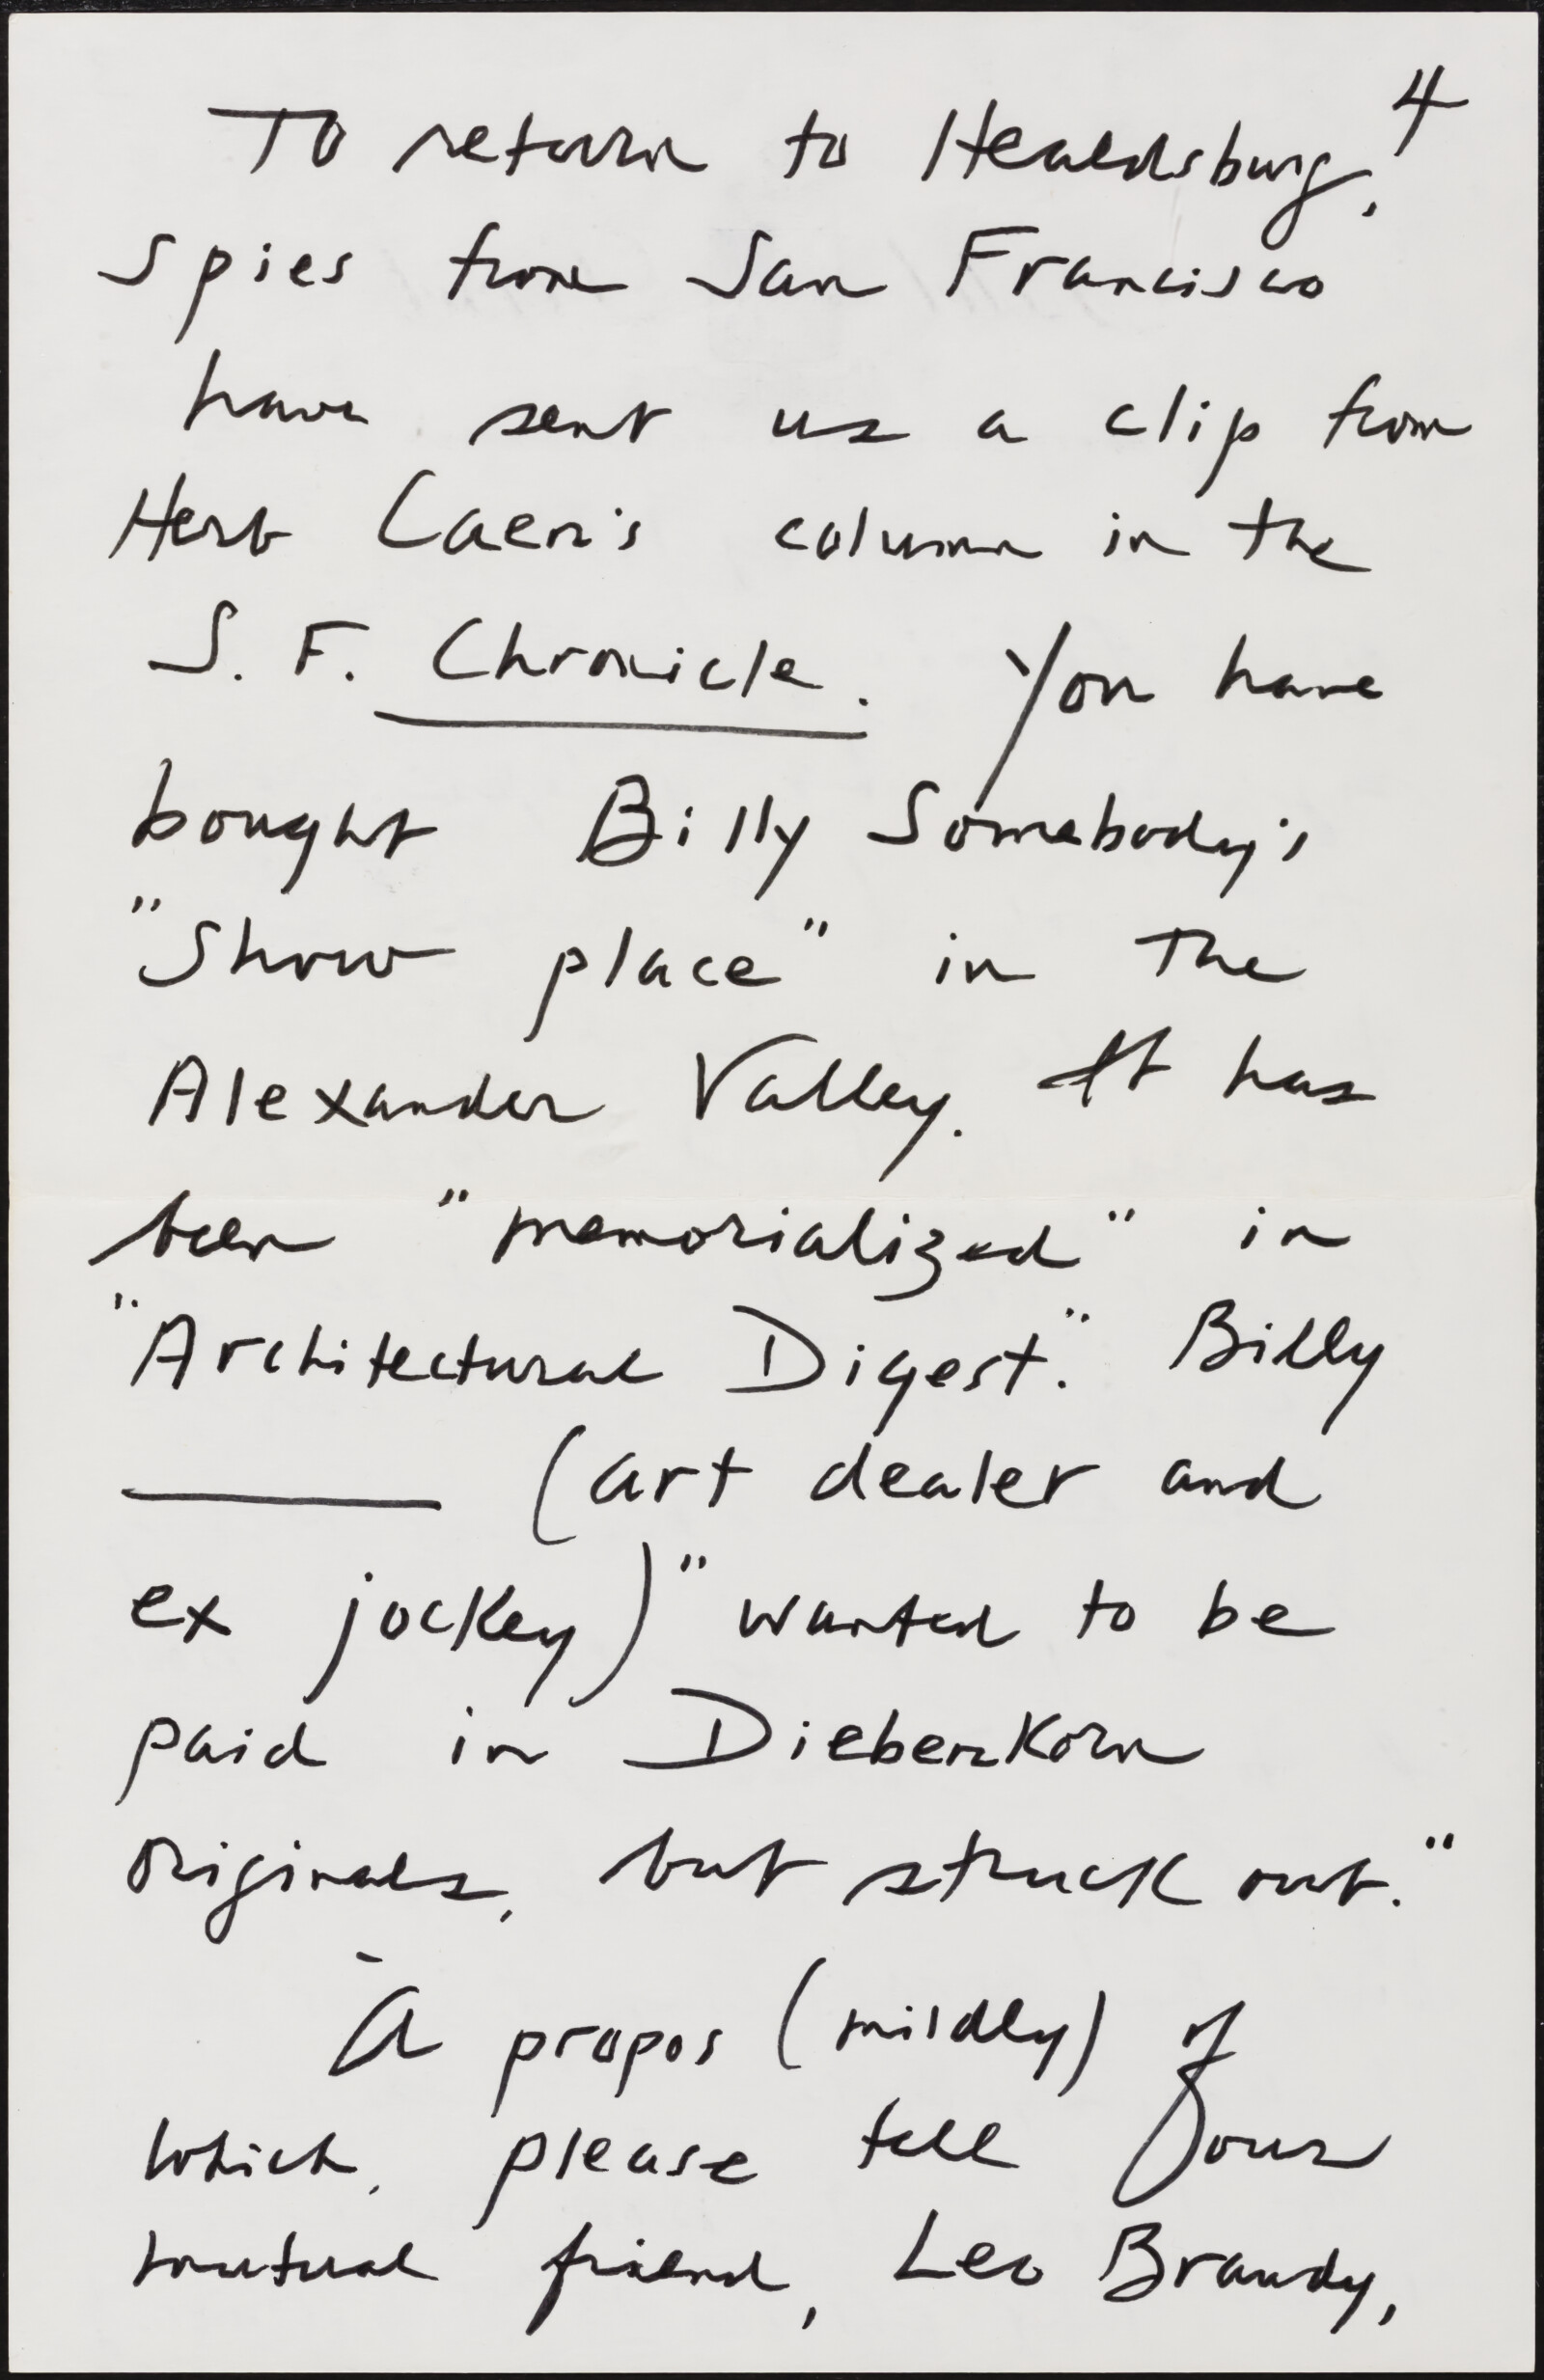 4
To return to Healdsburg,
spies from San Francisco
have sent us a clip from
Herb Caen's column in the
S. F. Chronicle. You have
bought Billy Somebody's
"Show place" in the
Alexander Valley. It has
been "memorialized" in
"Architectural Digest." Billy
——— (art dealer and
ex jockey) "wanted to be
paid in Diebenkorn
originals, but struck out."
À propos (mildly) of
which, please tell our
mutual friend, Leo Brandy,